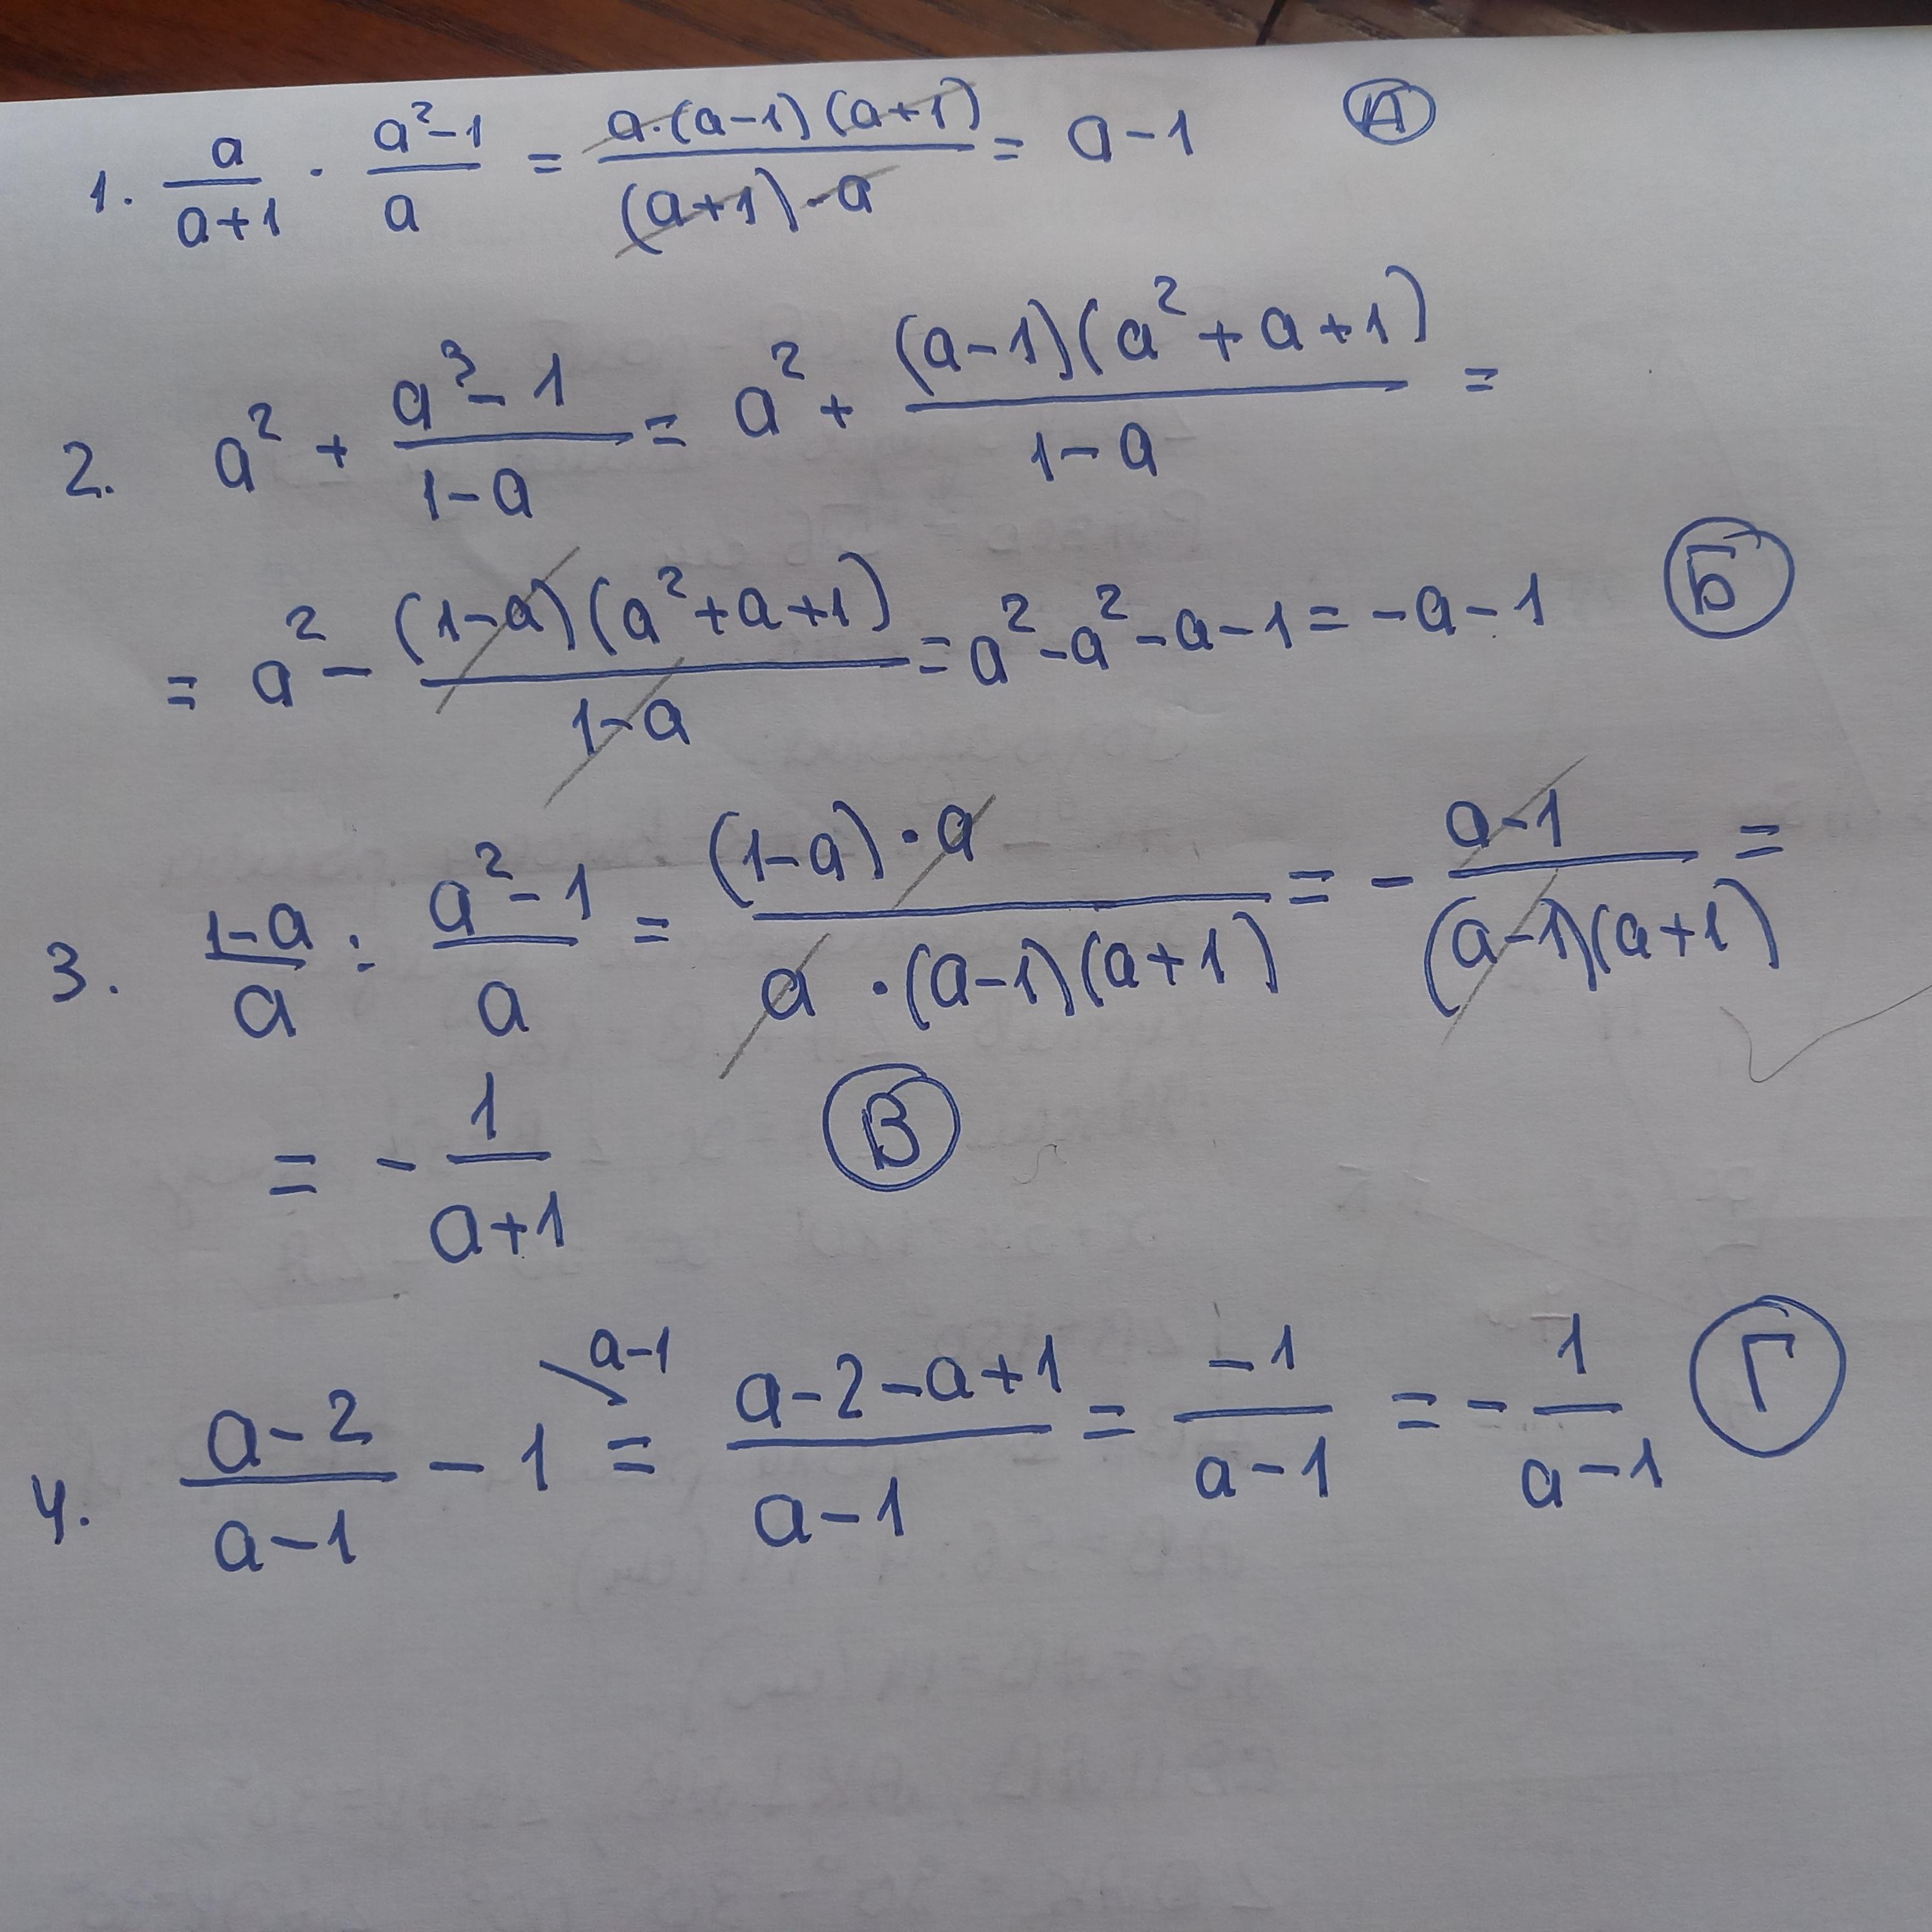 1. a/(a+1) · (a²-1)/a = (a·(a-1)(a+1))/((a+1)·a) = a-1 А
2. a² + (a³-1)/(1-a) = a² + ((a-1)(a²+a+1))/(1-a) =
= a² - ((1-a)(a²+a+1))/(1-a) = a²-a²-a-1 = -a-1 Б
3. (1-a)/a : (a²-1)/a = ((1-a)·a)/(a·(a-1)(a+1)) = - (a-1)/((a-1)(a+1)) =
= - 1/(a+1) В
4. (a-2)/(a-1) - 1 \a-1 = (a-2-a+1)/(a-1) = -1/(a-1) = - 1/(a-1) Г